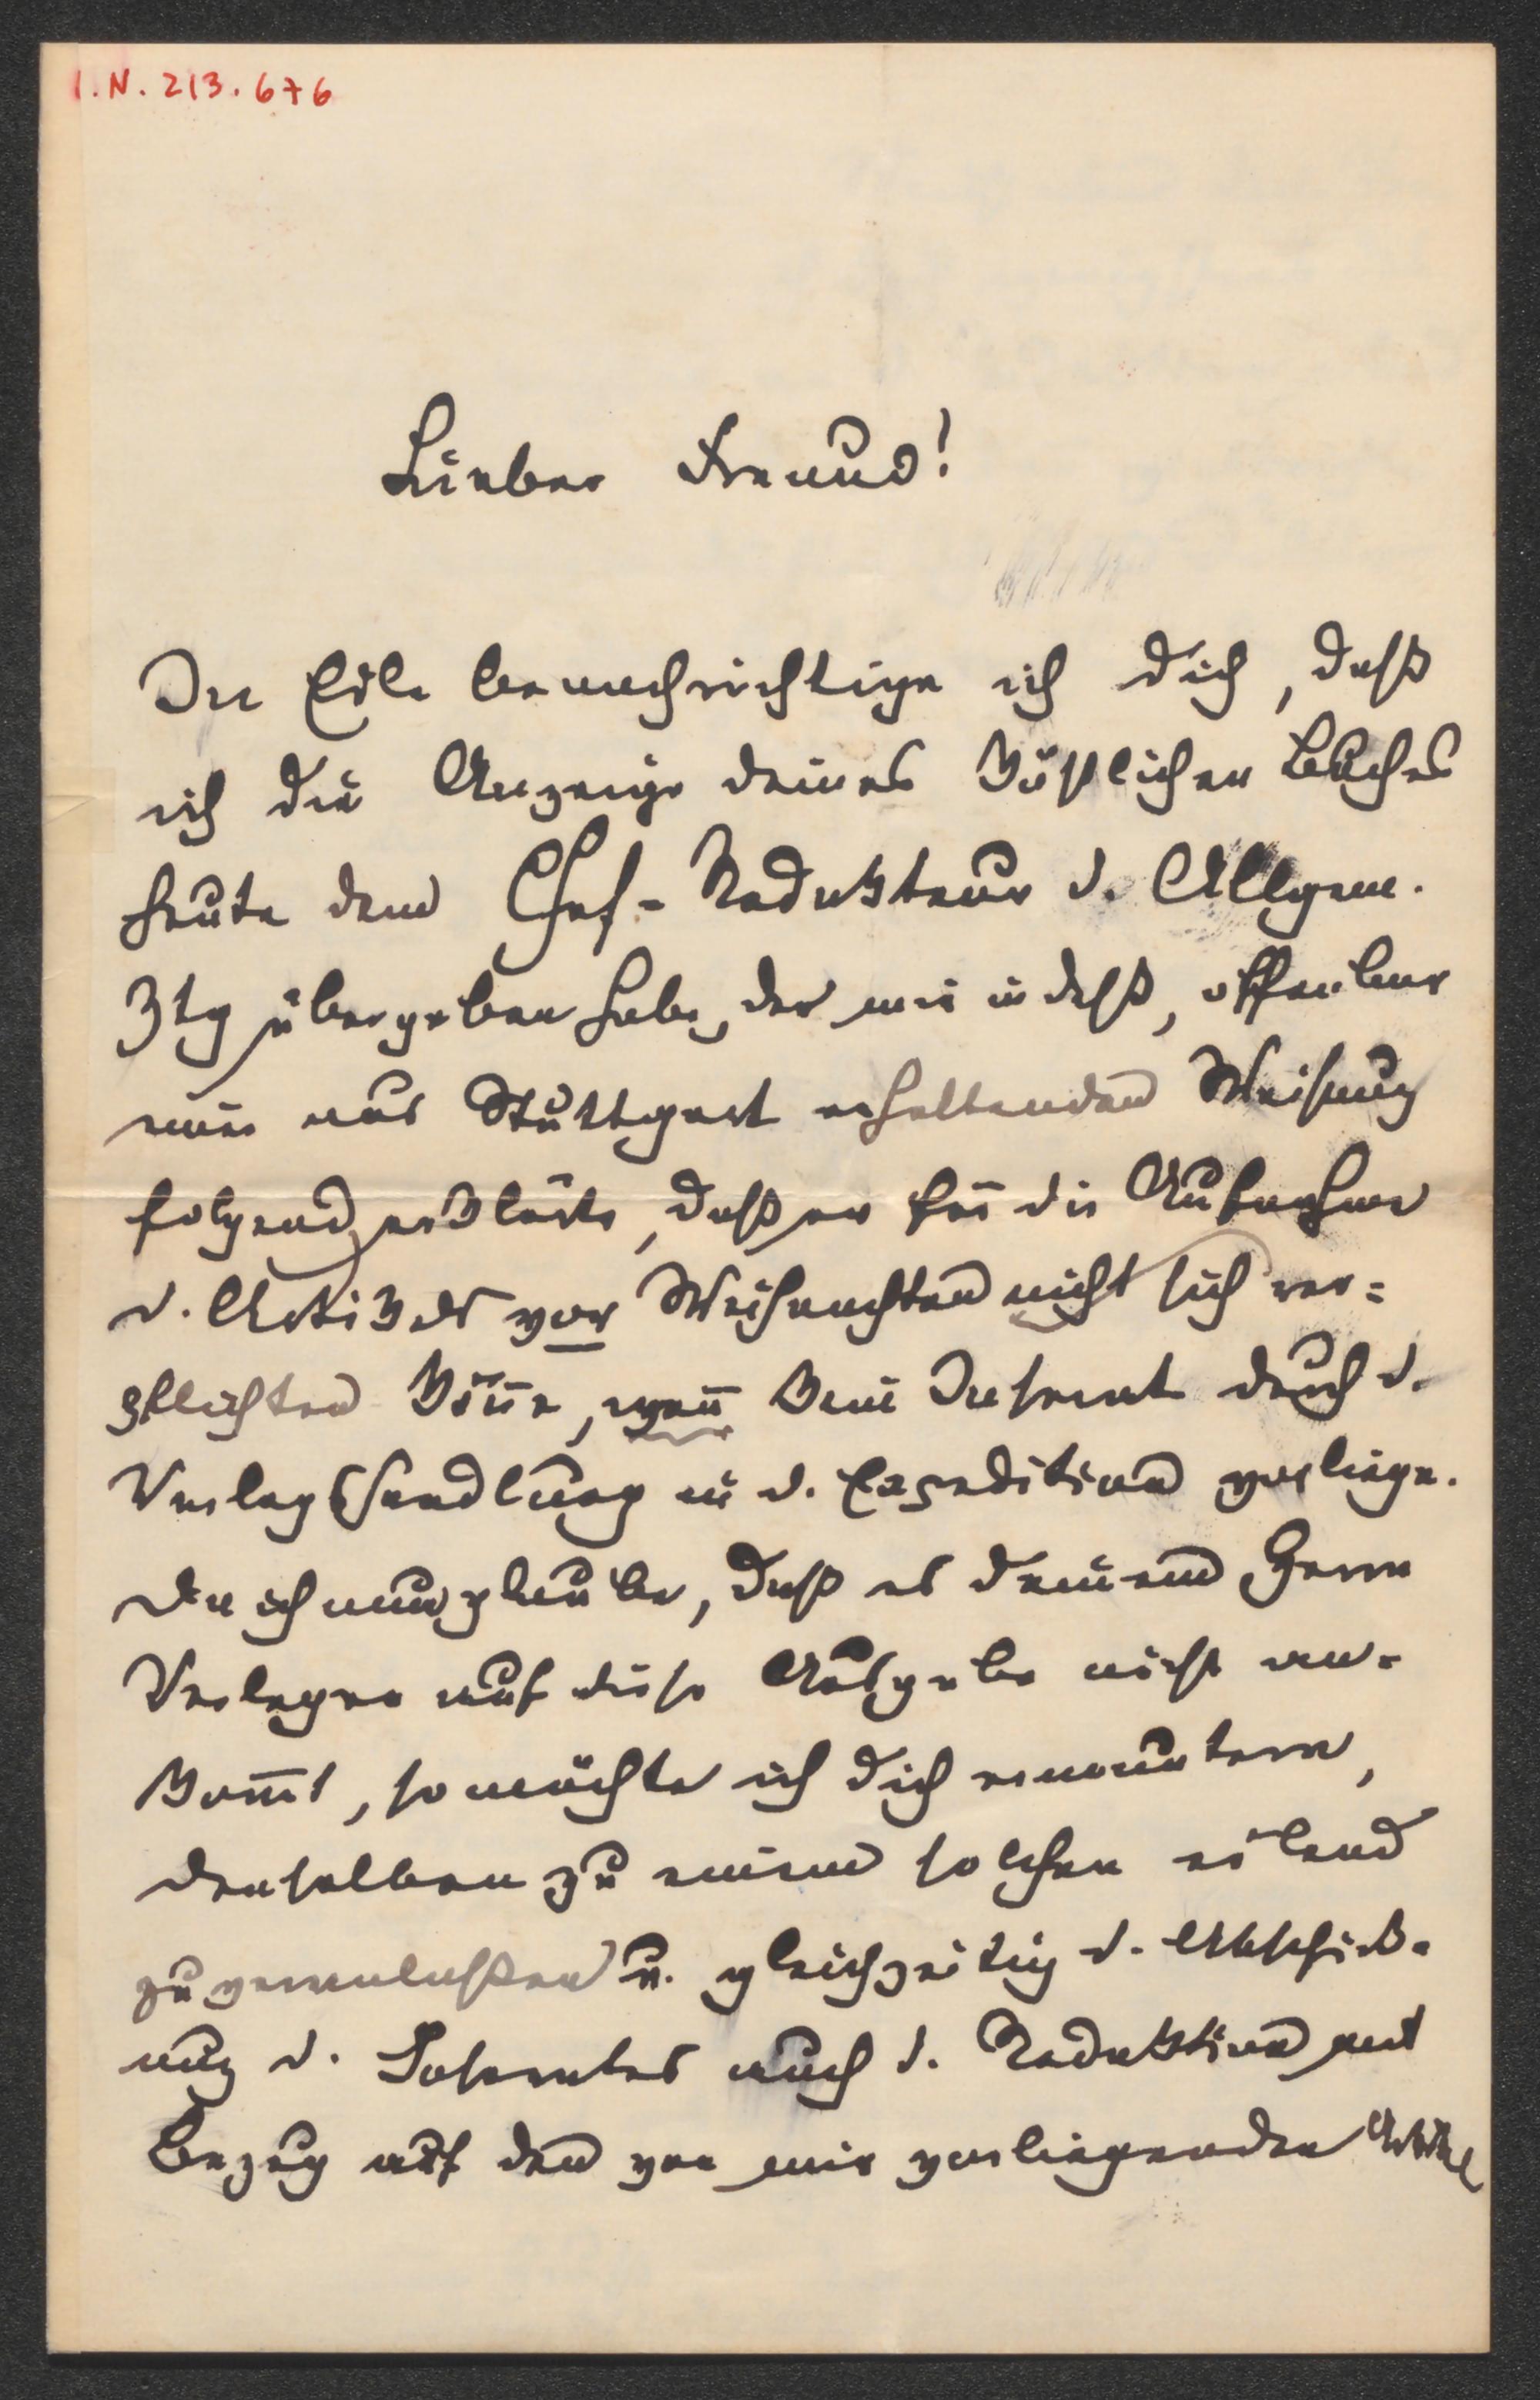 I.N. 213.676
Lieber Freund!
In Eile benachrichtige ich dich, daß
ich die Anzeige deines köstlichen Buches
heute dem Chef-Redakteur d. Allgem.
Ztg übergeben habe, der mir indeß, offenbar
einer aus Stuttgart erhaltenden Weisung
folgend, erklärte, daß er für die Aufnahme
d. Artikels vor Weihnachten nicht sich ver=
pflichten kön̄e, wen̄ kein Inserat durch d.
Verlagshandlung in d. Expedition vorliege.
Da ich nun glaube, daß es deinem Herrn
Verleger auf diese Ausgabe nicht an-
kom̄t, so möchte ich dich ermuntern,
denselben zu einem solchen eilend
zu veranlaßen u. gleichzeitig d. Abschick-
ung d. Inserates auch d. Redaktion mit
Bezug auf den von mir vorliegenden Artikel